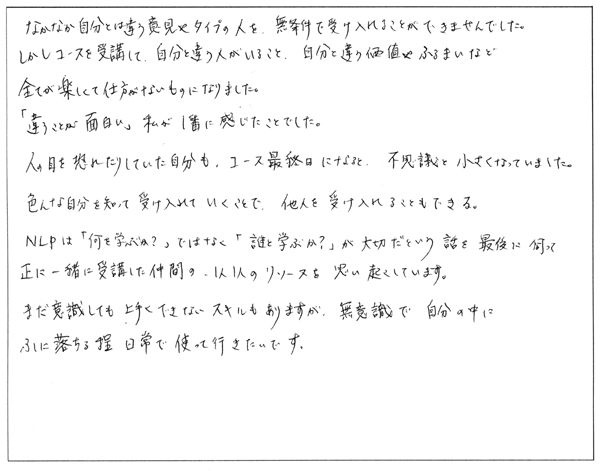 なかなか自分とは違う意見やタイプの人を、無条件で受け入れることができませんでした。
しかしコースを受講して、自分と違う人がいること、自分と違う価値やふるまいなど
全てが楽しくて仕方がないものになりました。
「違うことが面白い」私が1番に感じたことでした。
人の目を恐れたりしていた自分も、コース最終日になると、不思議と小さくなっていました。
色んな自分を知って受け入れていくことで、他人を受け入れることもできる。
NLPは「何を学ぶか?」ではなく「誰と学ぶか?」が大切だという話を最後に伺って
正に一緒に受講した仲間の、1人1人のリソースを思い起くしています。
まだ意識しても上手くできないスキルもありますが、無意識で自分の中に
ふに落ちる程日常で使って行きたいです。